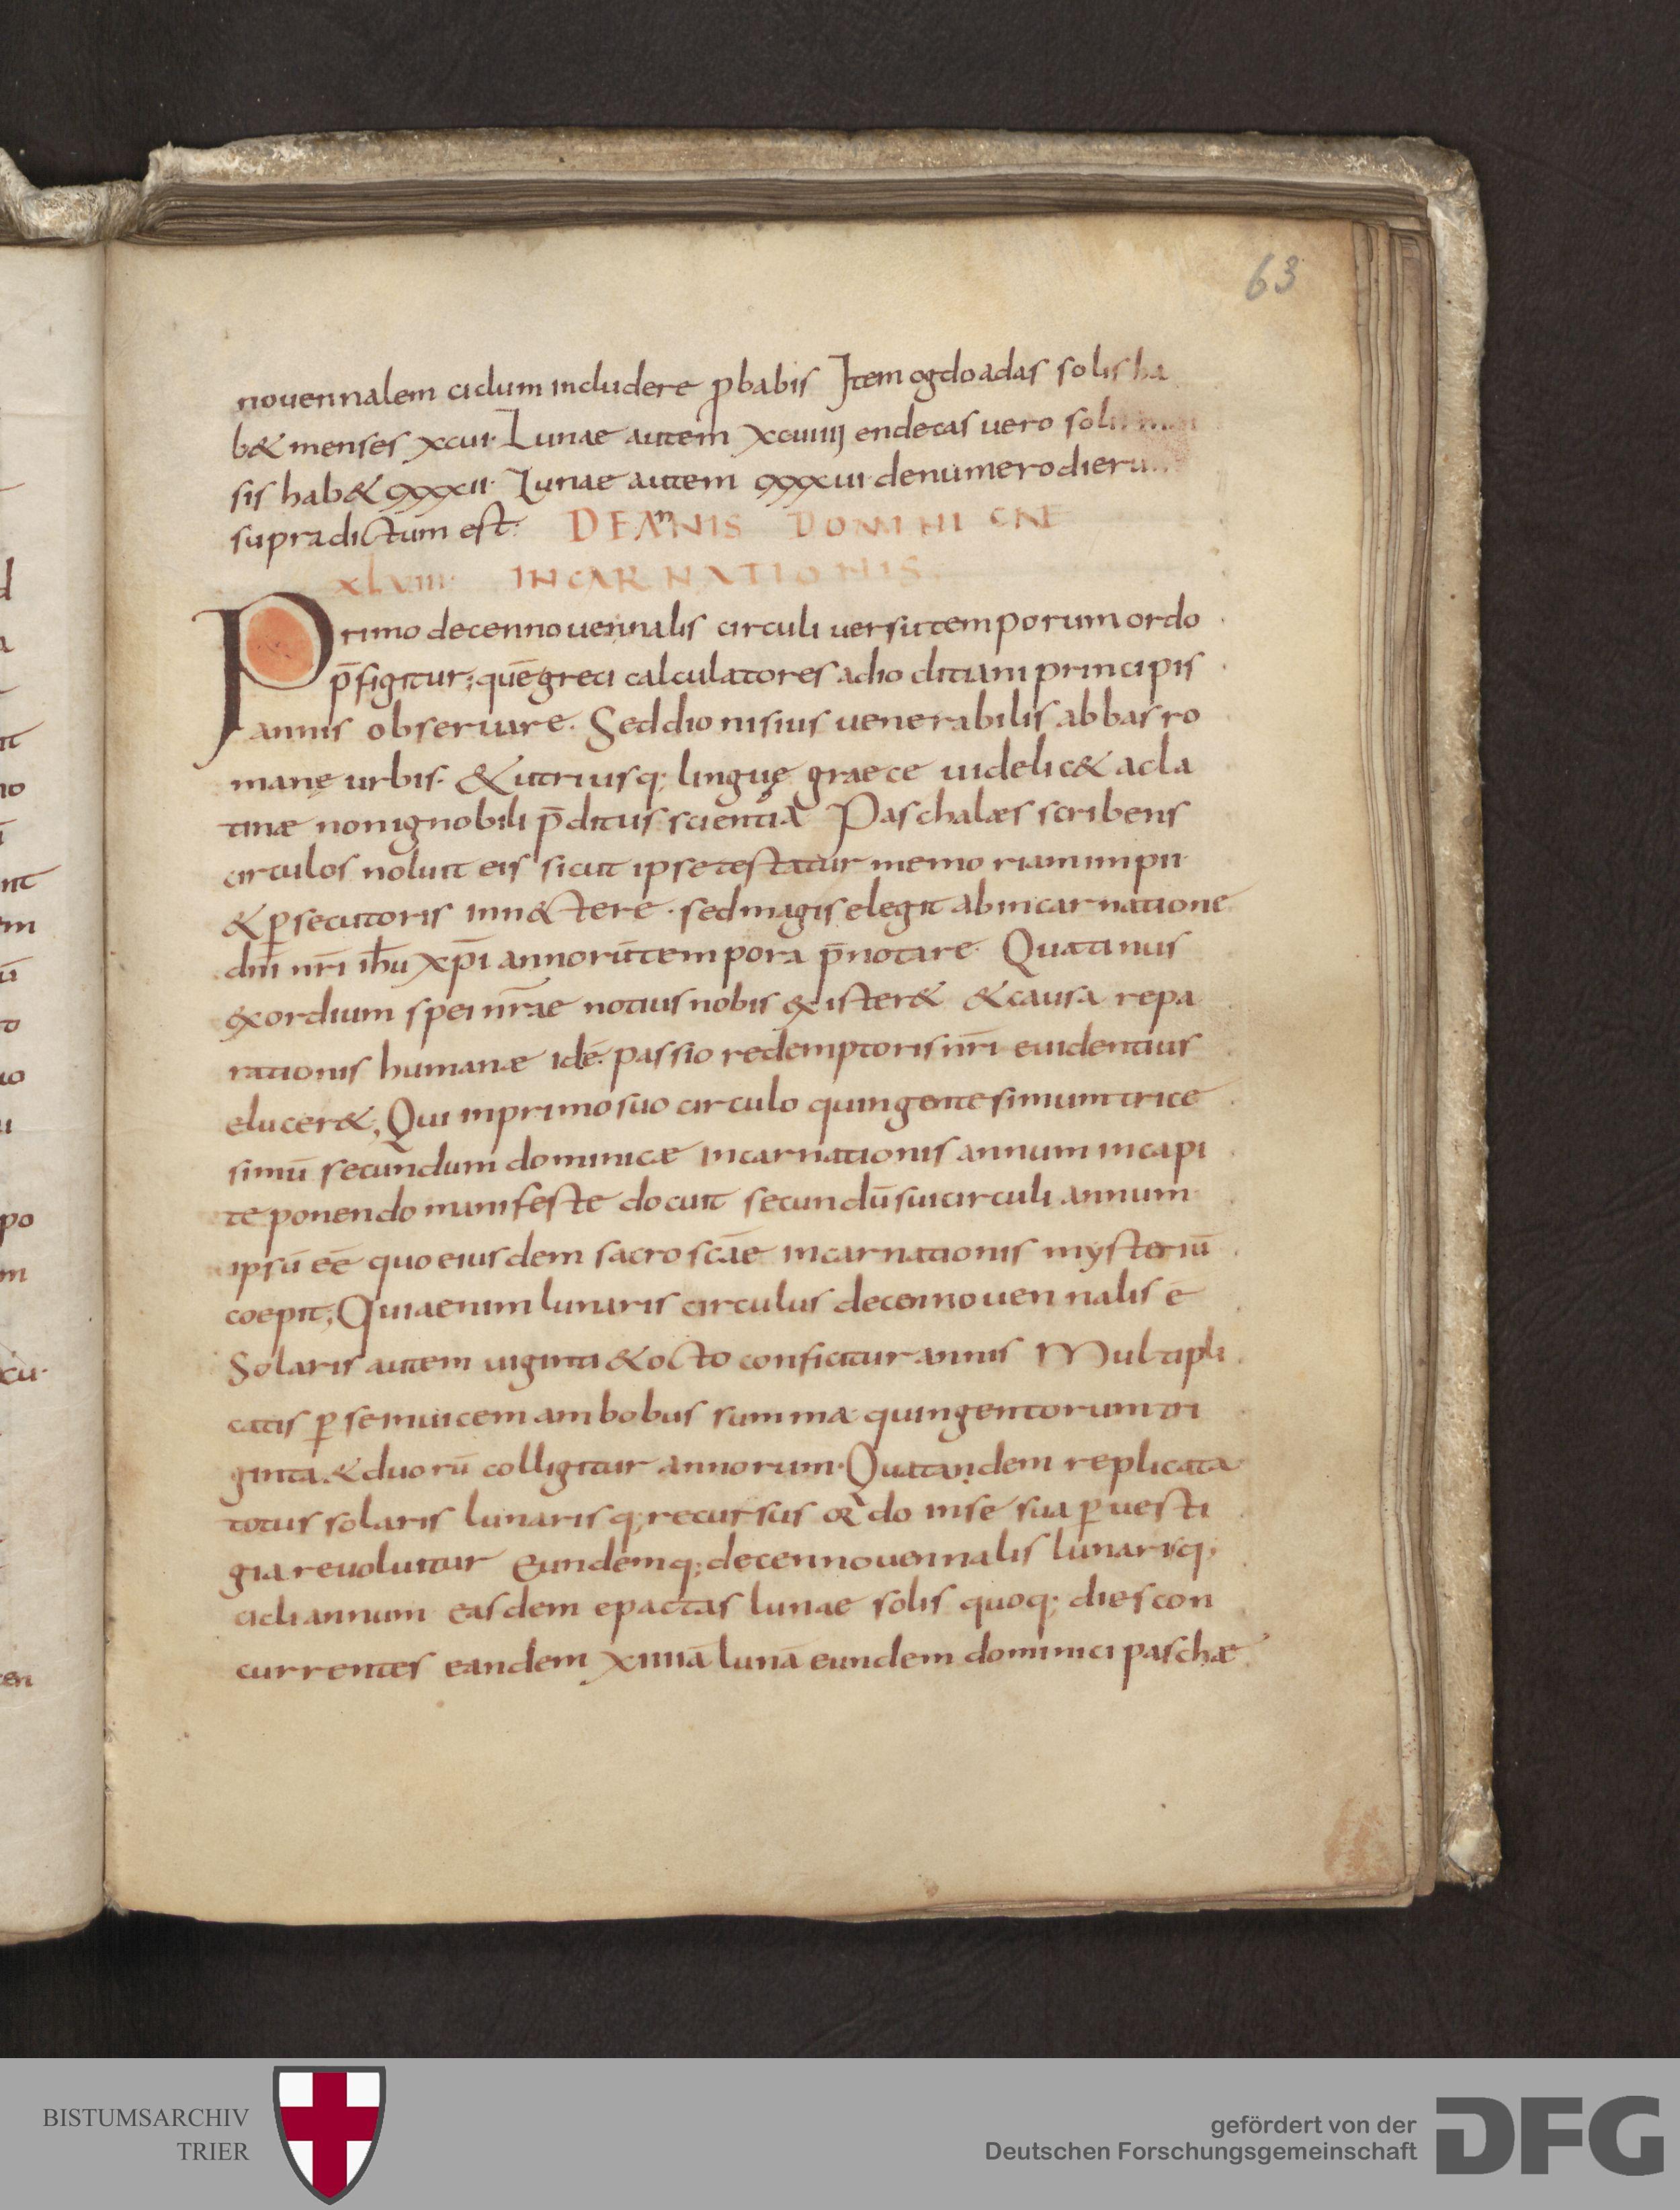 63
nouennalem ciclum includere ꝓbabis Item ogdoadas solis ha
b& menses xcui. Lunae autem xcuiiij endecas uero solis
sis hab& cxxxii. Lunae autem cxxxui de numero dieru
supradictum est. DE AnNIS DOMINICAE
XLVIII INCARNATIONIS.
Primo decennouennalis circuli uersu temporum ordo
p̄figitur; quē greci calculatores a dioclitiani principis
annis obseruare. Sed dionisius uenerabilis abbas ro
manę urbis. & utriusq; linguę graece uidelic& ac la
tinæ non ignobili p̄ditus scientia Paschalæs scribens
circulos noluit eis sicut ipse testatur memoriam impii
& ꝑsecutoris inn&tere. sed magis elegit ab incarnatione
dn̄i nr̄i ih̄u xp̄i annorū tempora p̄notare. Quatinus
exordium spei nr̄ae notius nobis exister& & causa repa
rationis humanæ idē. passio redemptoris nr̄i euidentius
elucer&, Qui in primo suo circulo quingentesimum trice
simū secundum dominicæ incarnationis annum in capi
te ponendo manifeste docuit secundū sui circuli annum
ipsū eē quo eiusdem sacro sc̄ae incarnationis mysteriū
coepit; Quia enim lunaris circulus decennouennalis ē
Solaris autem uiginti & octo conficitur annis Multipli
catis ꝑ se inuicem ambobus summa quingentorum tri
ginta & duorū colligitur annorum. Qua tandem replicata
totus solaris lunarisq; recursus ordo in se sua ꝑ uesti
gia reuoluitur Eundemq; decennouennalis lunarisq;
cicli annum easdem epactas lunae solis quoq; dies con
currentes eandem xiiiiā lunā eundem dominici paschæ
BISTUMSARCHIV
TRIER
gefördert von der
Deutschen Forschungsgemeinschaft
DFG